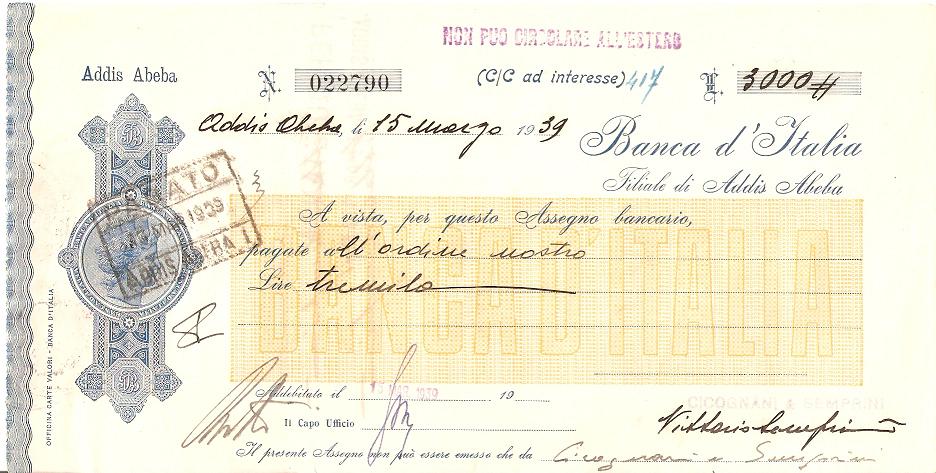 NON PUO CIRCOLARE ALL'ESTERO
Addis Abeba N. 022790 (C/C ad interesse) 417 L. 3000
Addis Abeba, li 15 Marzo 1939
Banca d'Italia
Filiale di Addis Abeba
PAGATO
1939
ADDIS ABEBA 1
A vista, per questo Assegno bancario,
pagate all'ordine nostro
Lire tremila
BANCA D'ITALIA
OFFICINA CARTE VALORI - BANCA D'ITALIA
Addebitato il 15 MAR 1939 19
CICOGNANI & SEMPRINI
Il Capo Ufficio
Vittorio Semprini
Il presente Assegno non può essere emesso che da Cicognani e Semprini